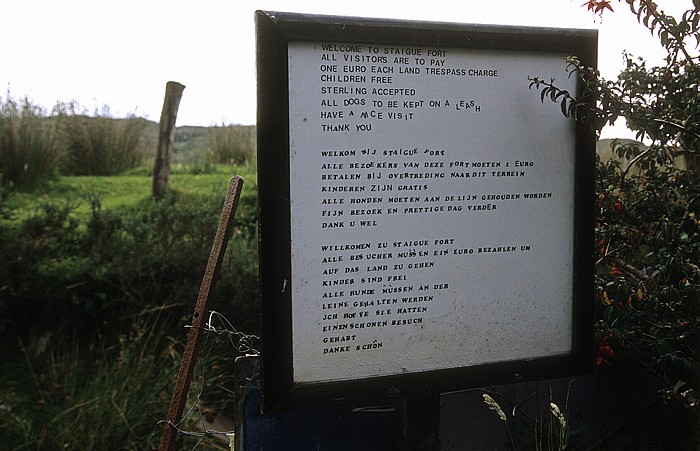 WELCOME TO STAIGUE FORT
ALL VISITOR'S ARE TO PAY
ONE EURO EACH LAND TRESPASS CHARGE
CHILDREN FREE
STERLING ACCEPTED
ALL DOGS TO BE KEPT ON A LEASH
HAVE A NICE VISIT
THANK YOU
WELKOM BIJ STAIGUE FORT
ALLE BEZOEKERS VAN DEZE FORT MOETEN 1 EURO
BETALEN BIJ OVERTREDING NAAR DIT TERREIN
KINDEREN ZIJN GRATIS
ALLE HONDEN MOETEN AAN DE LIJN GEHOUDEN WORDEN
FIJN BEZOEK EN PRETTIGE DAG VERDER
DANK U WEL
WILLKOMEN ZU STAIGUE FORT
ALLE BESUCHER MÜSSEN EIN EURO BEZAHLEN UM
AUF DAS LAND ZU GEHEN
KINDER SIND FREI
ALLE HUNDE MÜSSEN AN DER
LEINE GEHALTEN WERDEN
JCH SIE HATTEN
EINENSCHONEN BESUCH
GEHABT
DANKE SCHÖN